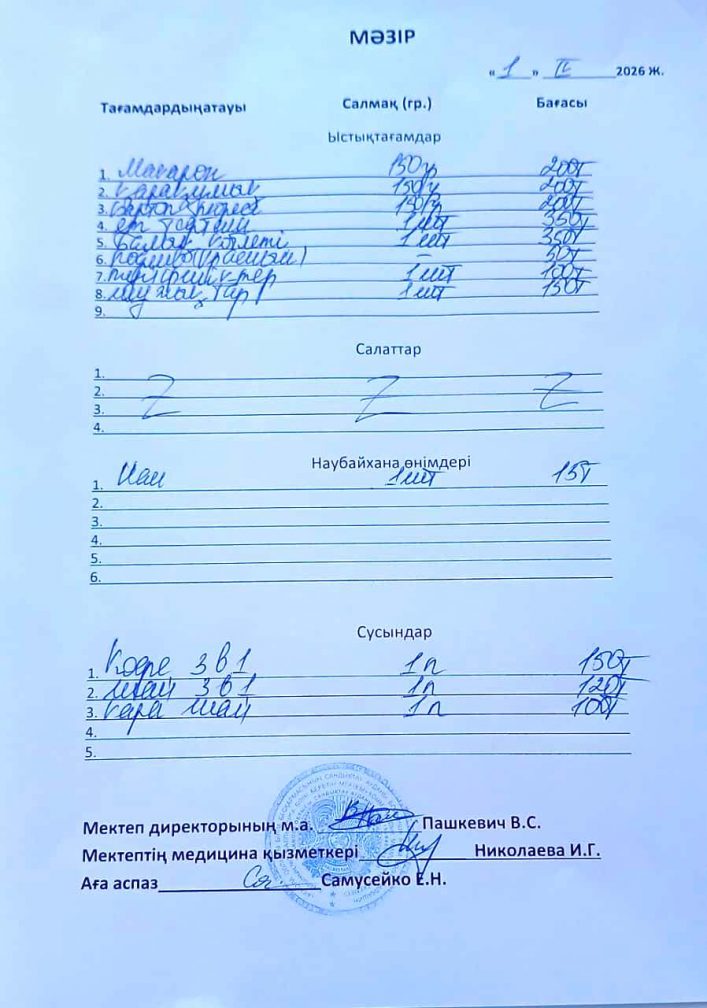 МӘЗІР
« 1 » II 2026 ж.
Тағамдардыңатауы Салмақ (гр.) Бағасы
Ыстықтағамдар
1. Макарон 150гр 200т
2. қарақұмық 150гр 200т
3. Картоп пюресі 150гр 200т
4. ет 1 шт 350т
5. балық котлеті 1 шт 350т
6. – 50т
7. 1 шт 100т
8. шұжықтар 1 шт 150т
9.
Салаттар
1.
2.
3.
4.
Наубайхана өнімдері
1. Нан 1 шт 15т
2.
3.
4.
5.
6.
Сусындар
1. Кофе 3 в 1 1п 150т
2. шай 3 в 1 1п 120т
3. қара шай 1п 100т
4.
5.
Мектеп директорының м.а. Пашкевич В.С.
Мектептің медицина қызметкері Николаева И.Г.
Аға аспаз Самусейко Е.Н.